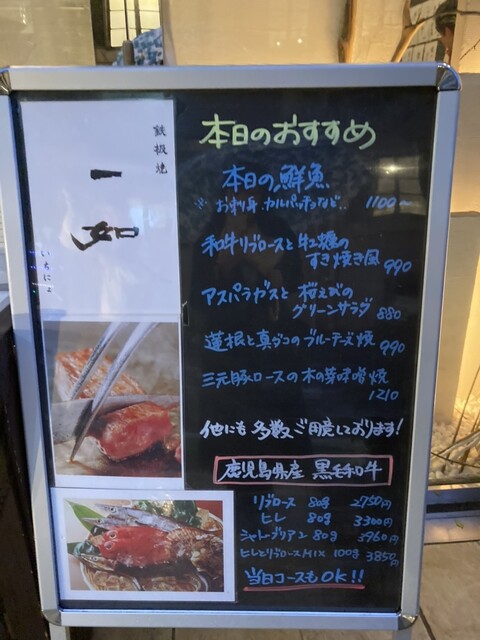 鉄板焼
一如
いちにょ
本日のおすすめ
本日の鮮魚
※お刺身.カルパッチョなど.. 1100〜
和牛リブロースと牡蠣の
すき焼き風 990
アスパラガスと桜えびの
グリーンサラダ 880
蓮根と真ダコのブルーチーズ焼 990
三元豚ロースの木の芽味噌焼
1210
他にも多数ご用意しております!
鹿児島県産 黒毛和牛
リブロース 80g 2750円
ヒレ 80g 3300円
シャトーブリアン 80g 3960円
ヒレとリブロースMIX 100g 3850円
当日コースもOK!!